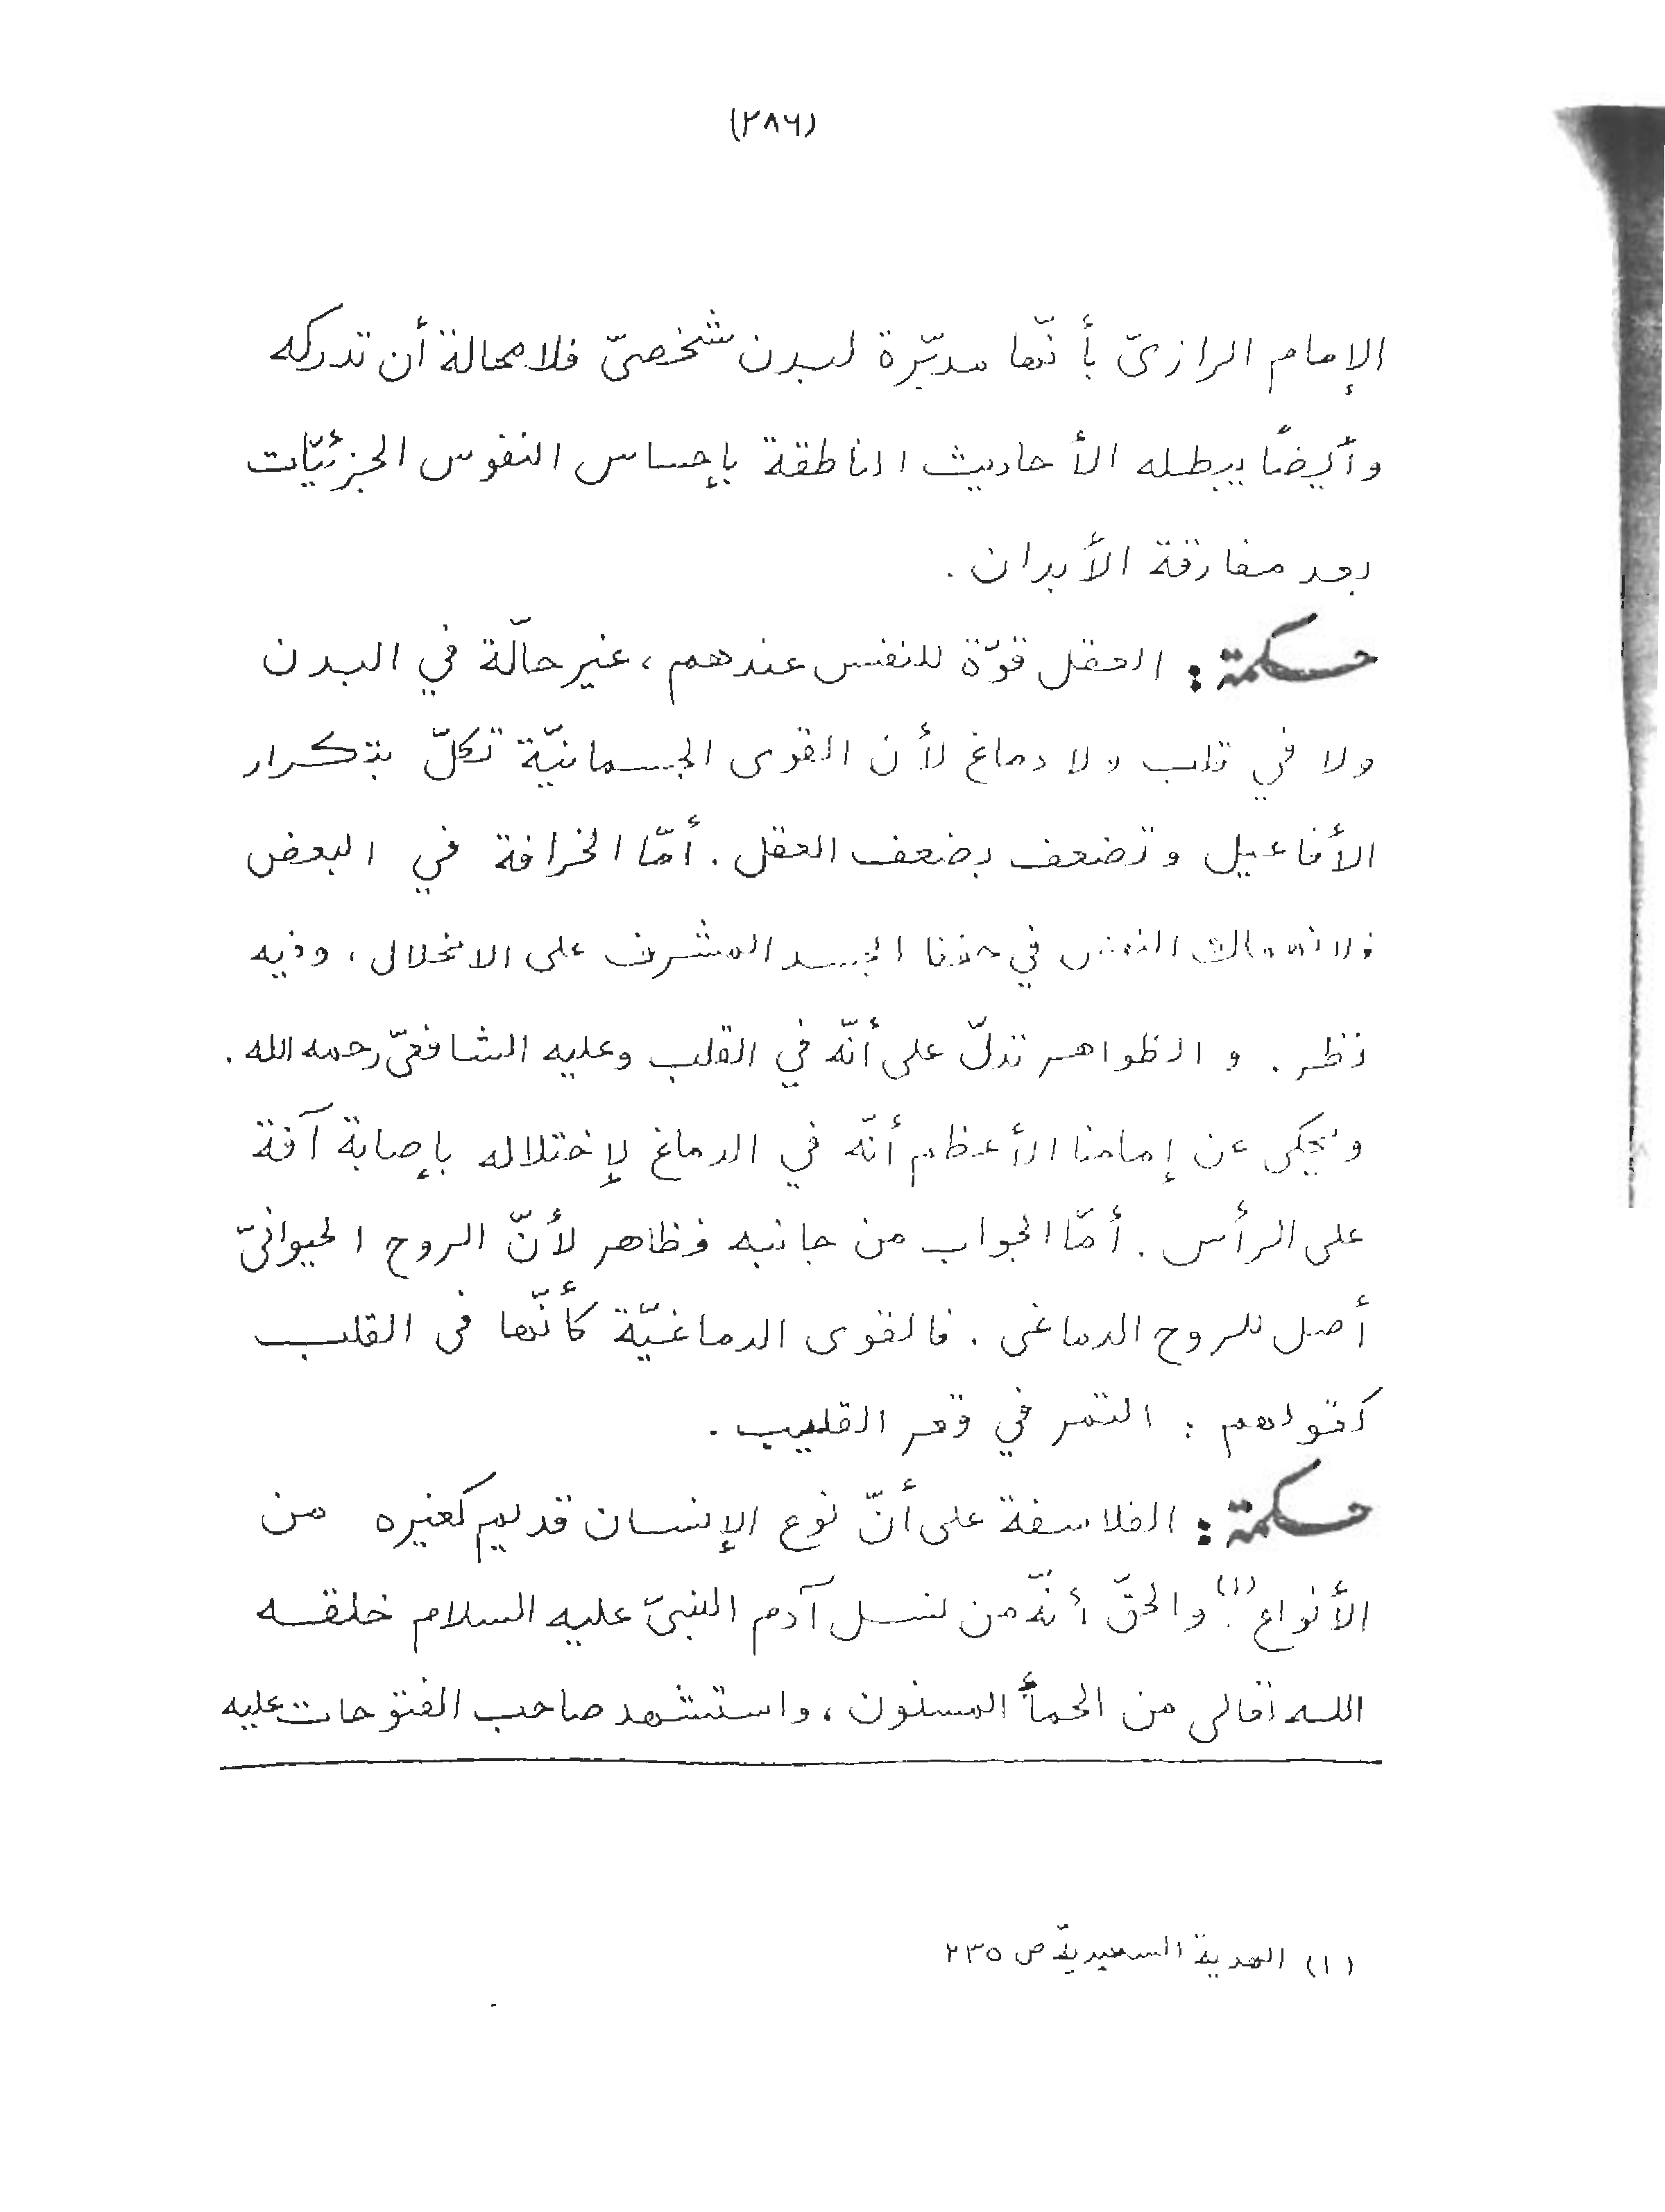 (٢٨٦)
الإمام الرازىّ بأنّها مدبّرة لبدن شخصىّ فلا محالة أن تدركه
وأيضًا يبطله الأحاديث الناطقة بإحساس النفوس الجزئيّات
بعد مفارقة الأبدان .
حكمة : العقل قوّة للنفس عندهم ، غير حالّة في البدن
ولا في قلب ولا دماغ لأن القوى الجسمانيّة تكلّ بتكرار
الأفاعيل وتضعف بضعف العقل . أمّا الخرافة في البعض
فلانهماك النفس في حفظ الجسد المشرف على الانحلال ، وفيه
نظر . و الظواهر تدلّ على أنّه في القلب وعليه الشافعىّ رحمه الله .
ويحكى عن إمامنا الأعظم أنّه في الدماغ لإختلاله بإصابة آفة
على الرأس . أمّا الجواب من جانبه فظاهر لأنّ الروح الحيوانىّ
أصل للروح الدماغى . فالقوى الدماغيّة كأنّها فى القلب
كقولهم : التمر في قعر القليب .
حكمة : الفلاسفة على أنّ نوع الإنسان قديم كغيره من
الأنواع (١). والحقّ أنّه من نسل آدم النبىّ عليه السلام خلقه
الله تعالى من الحمأ المسنون ، واستشهد صاحب الفتوحات عليه
(١) الهدية السعيديّة ص ٢٣٥